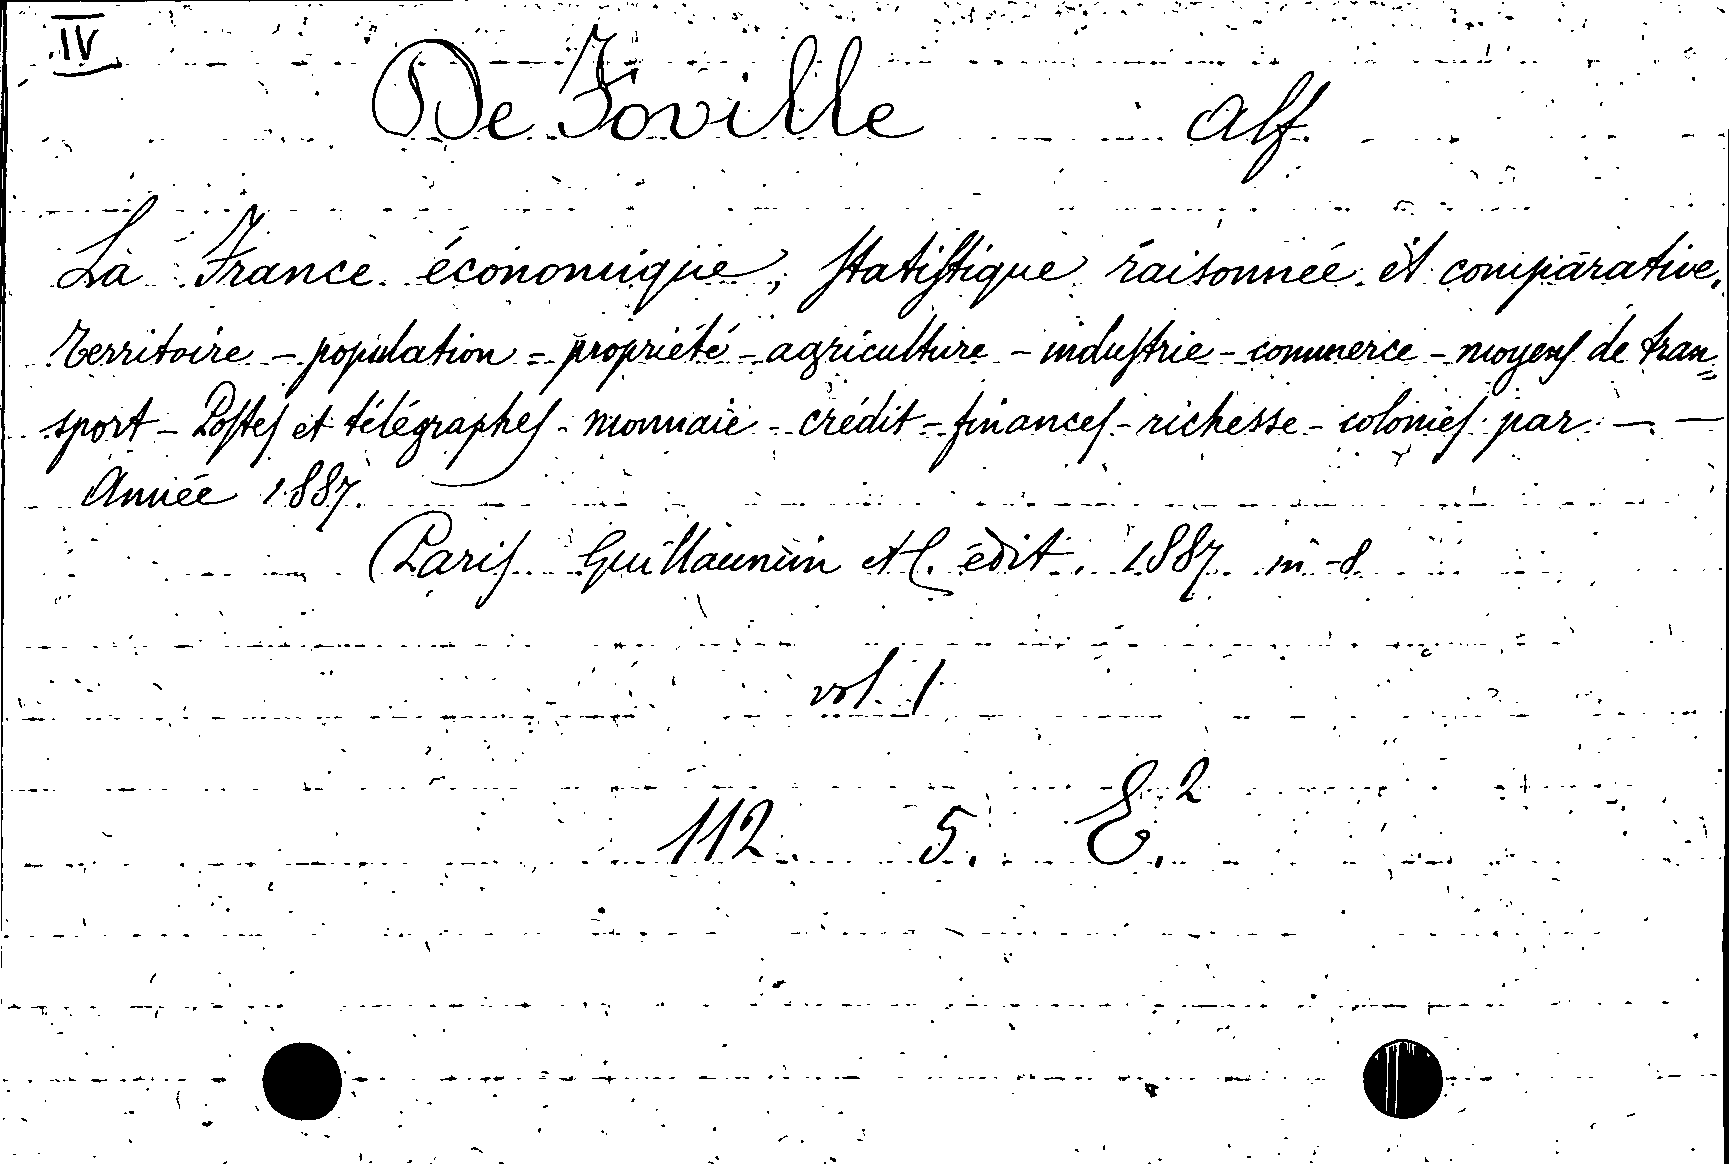 IV
De Foville Alf.
La France économique, statistique raisonnée et comparative.
Territoire - population - propriété - agriculture - industrie - commerce - moyens de tran=
sport - Postes et télégraphes - monnaie - crédit - finances - richesse - colonies par — —
Année 1887.
Paris Guillaumin et C. édit. 1887. in-8
vol. 1
112. 5. E.²